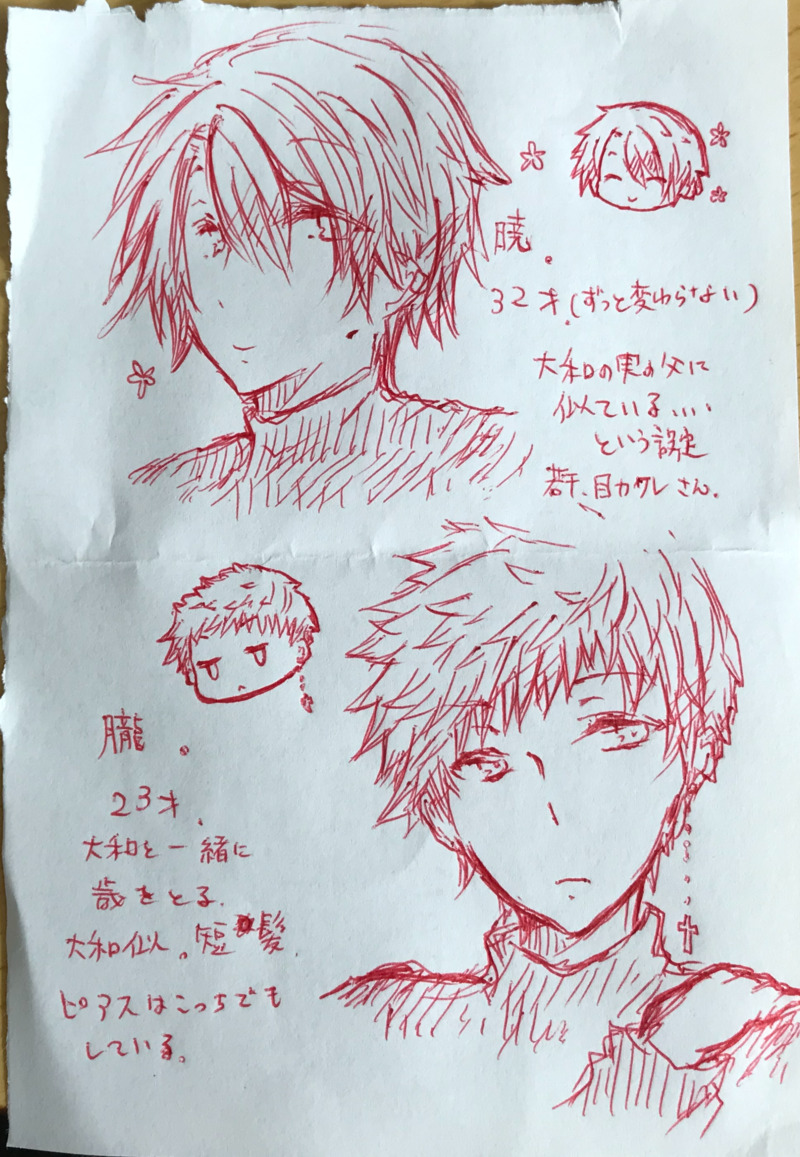 暁。
32才(ずっと変わらない)
大和の実の父に
似ている....
という設定
若干、目カクレさん.
朧。
23才.
大和と一緒に
歳をとる.
大和似。短髪
ピアスはこっちでも
している。